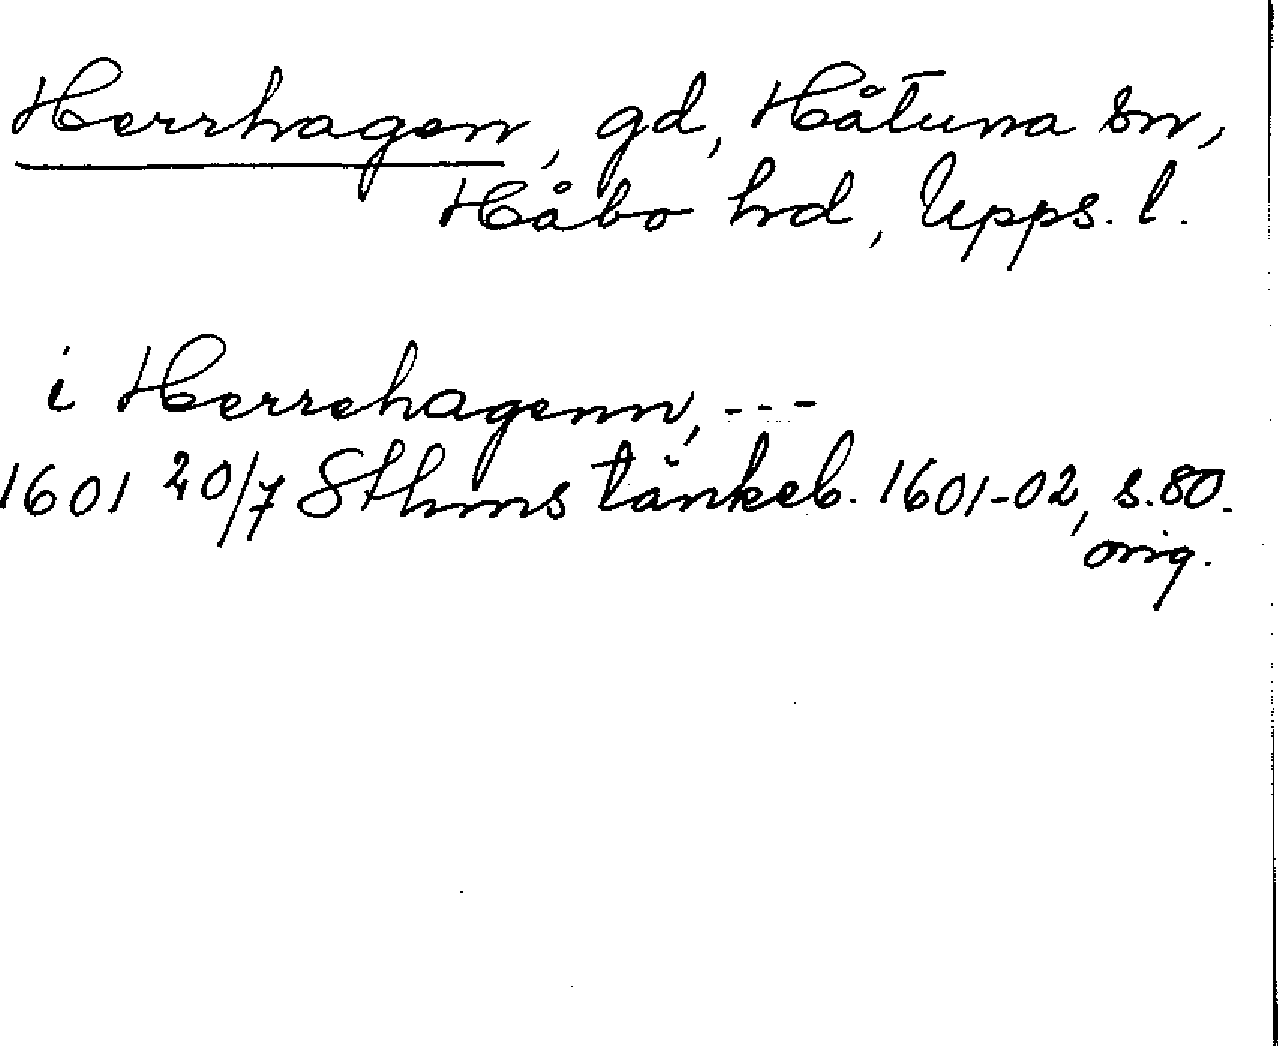 Herrhagen, gd, Håtuna sn,
Håbo hd, Upps. l.
i Herrehagenn, ---
1601 20/7 Sthms tänkeb. 1601-02, s. 80.
orig.